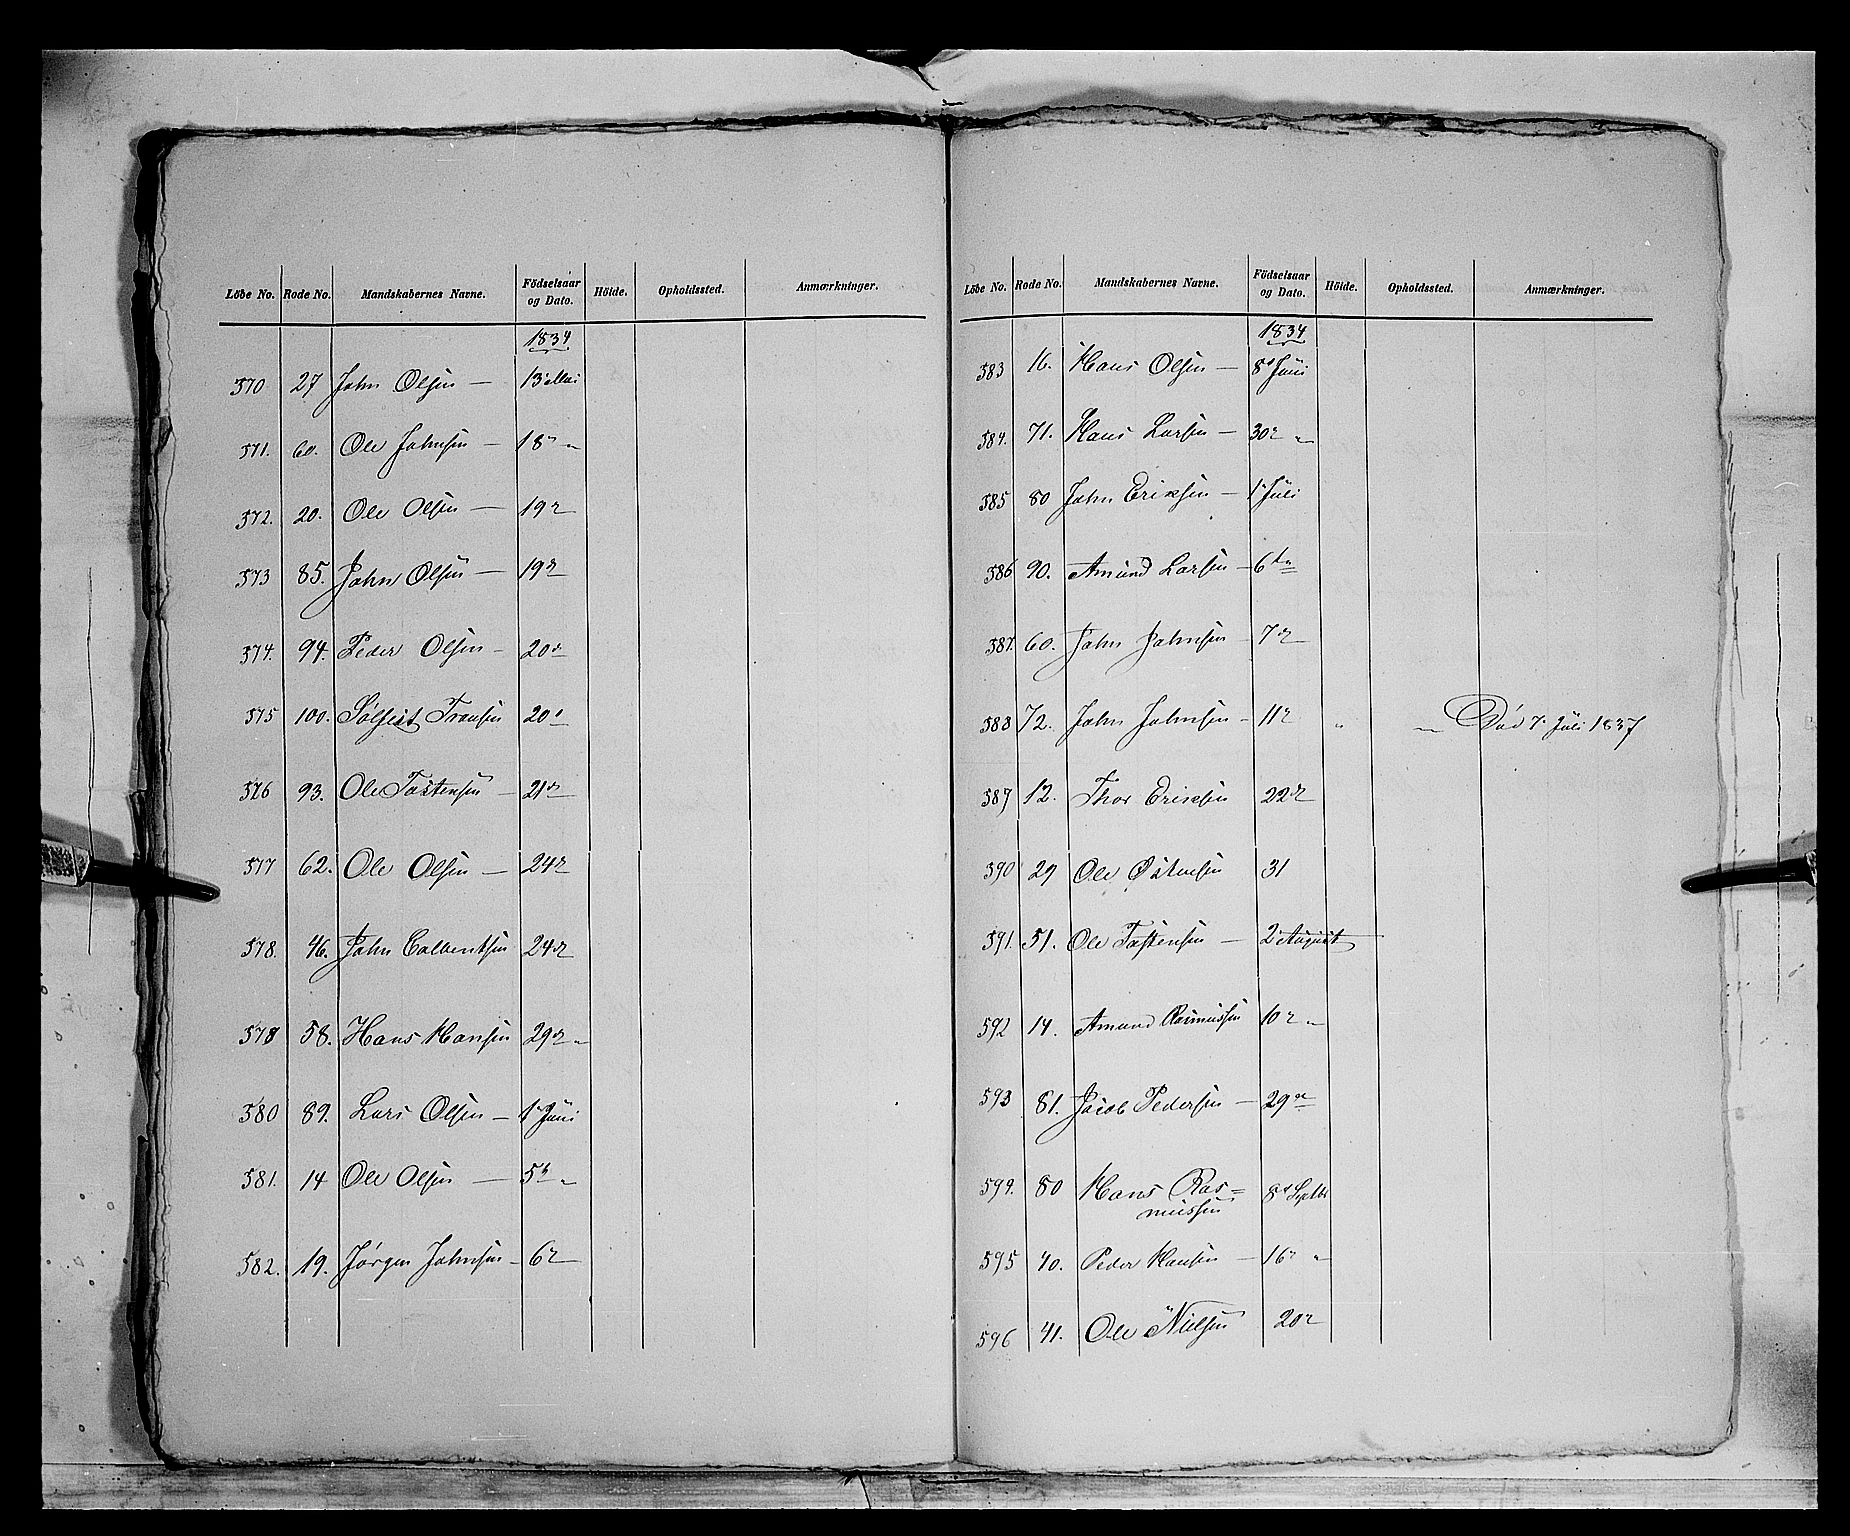 Löbe No. Rode No. Mandskabernes Navne. Födselsaar og Dato. Höide. Opholdssted. Anmærkninger.
1834
570 27 John Olsen — 13 Mai
571. 60. Ole Johnsen — 18 "
572. 20. Ole Olsen — 19
573 85. John Olsen — 19
574. 94. Peder Olsen — 20
575 100. 20
576 93. Ole Tostensen — 21
577 62. Ole Olsen — 24
578. 46. John 24
578 58. Hans Hansen 29 "
580 89. Lars Olsen — 1 Juni
581. 14 Ole Olsen — 5 "
582. 19. Jørgen Johnsen — 6
Löbe No. Rode No. Mandskabernes Navne. Födselsaar og Dato. Höide. Opholdssted. Anmærkninger.
1834
583 16. Hans Olsen — 8 Juni
584. 71. Hans Larsen — 30 "
585 80 John Ericksen — 1 Juli
586 90. Amund Larsen — 6 "
587. 60. John Johnsen — 7
588 72. John Johnsen — 11 " " Død 7 Juli 1837
589 12. Thor Ericksen 22
590 29 Ole Østensen 31
591. 51. Ole Tostensen — 2 August
592 14. Amund Rasmussen 10 "
593 81. Jacob Pedersen — 29
594. 80 Hans Ras=
mussen 8 Septbr
595 40. Peder Hansen — 16 "
596 41. Ole Nielsen 20